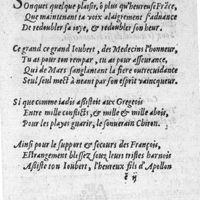 Sonques quelque plaisir, ô plus qu'heureuse Frãce,
Que maintenant ta voix alaigrement s'aduance
De redoubler sa ioye, & redoubler son heur.
Ce grand ce grand Ioubert, des Medecins l'honneur,
Tu as pour ton rempar, tu as pour asseurance,
Qui de Mars sanglamment la fiere outrecuidance
Seul seul meet à neant par son esprit vainqueur.
Si que comme iadis assistoit aux Gregeois
Entre mille conflicts, & mille & mille abois,
Pour les playes guarir, le souuerain Chiron.
Ainsi pour le support & secours des François,
Estrangement blessez souz leurs tristes harnois
Assiste ton Ioubert, l'heureux fils d'Apollon
ẽ ij